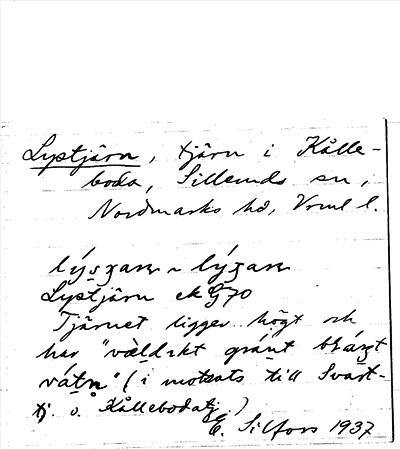 Lystjärn, tjärn i Kålle-
boda, Sillemds sn,
Nordmarks hd, Vrml l.
lýsʒarn ~ lýʒarn
Lystjärn ek G70
Tjärnet ligger högt och
har "väldıkt gránt
vátn" (i motsats till Svart-
tj. o. Kållebodatj.)
E. Silfors 1937